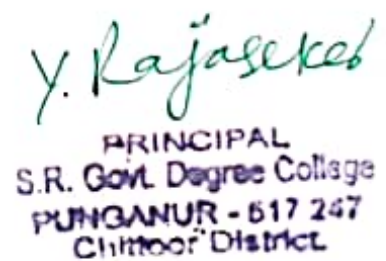 Y. Rajasekar
PRINCIPAL
S.R. Govt. Degree College
PUNGANUR - 517 247
Chittoor District.